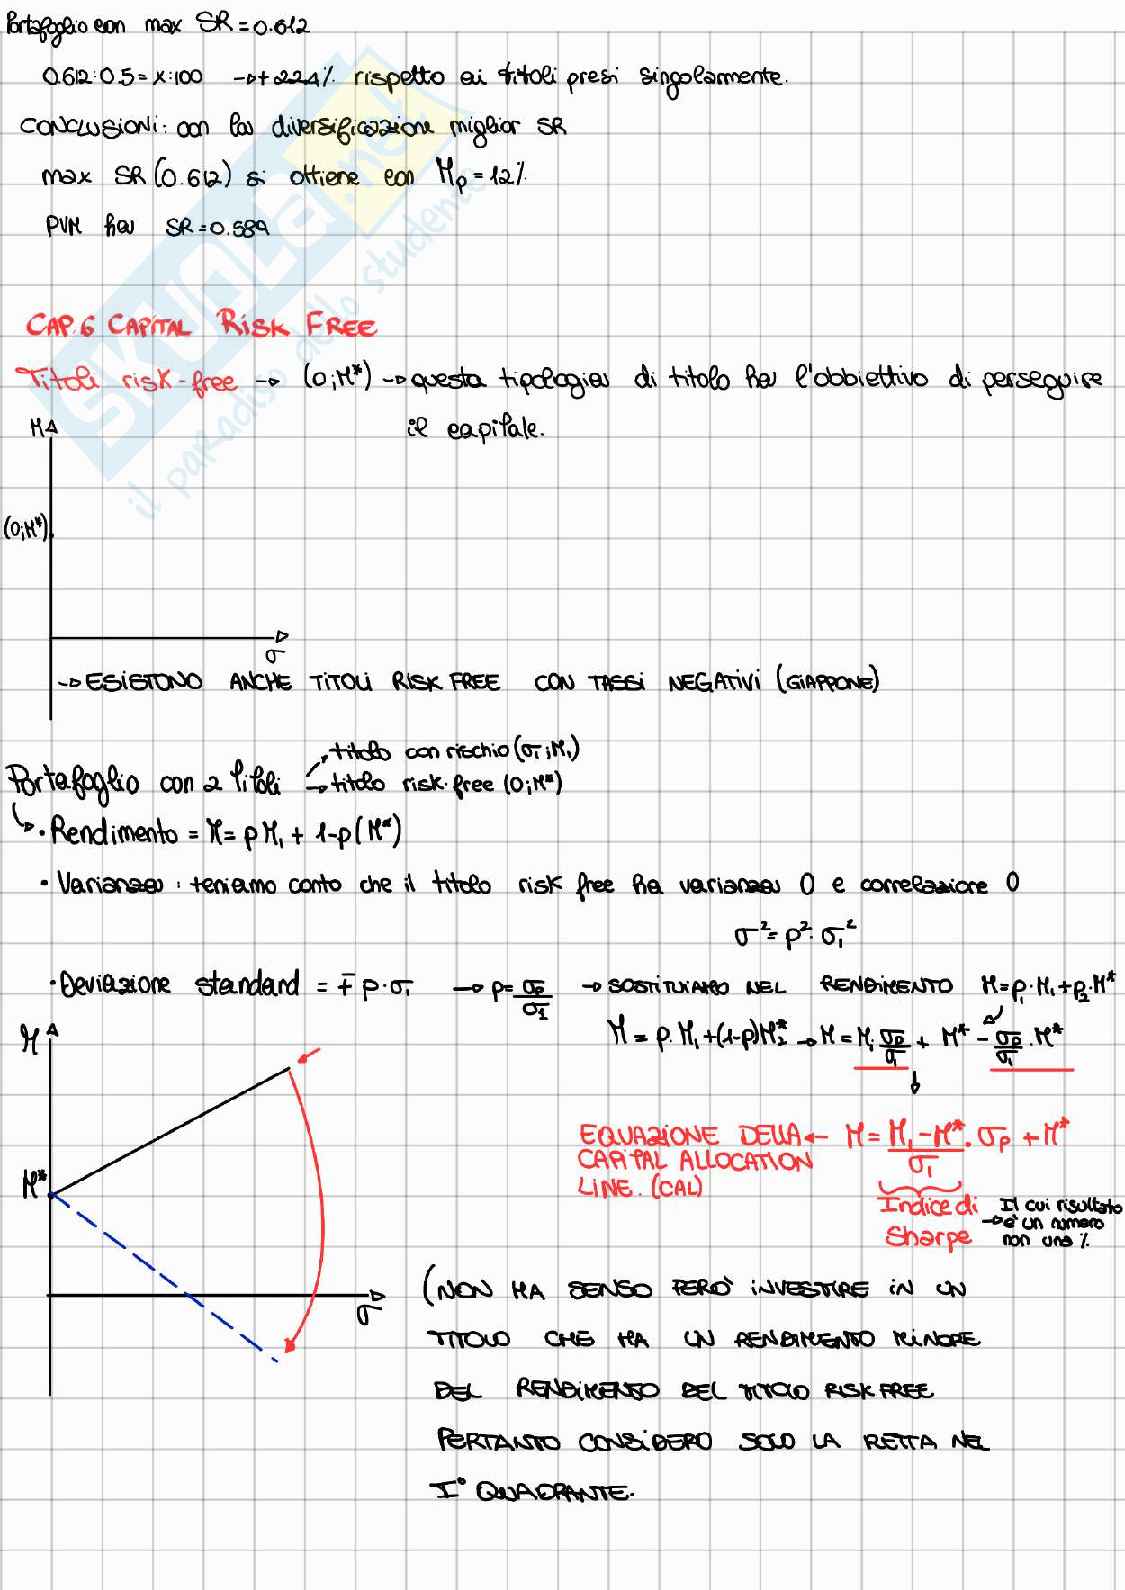 Portafoglio con max SR = 0.612
0.612:0.5 = x:100 → +22,4% rispetto ai titoli presi singolarmente.
CONCLUSIONI: con la diversificazione miglior SR
max SR (0.612) si ottiene con M_p = 12%
PVM ha SR = 0.589
CAP.6 CAPITAL RISK FREE
Titoli risk-free → (0;M*) → questa tipologia di titolo ha l'obbiettivo di perseguire
il capitale.
M
(0;M*)
σ
→ ESISTONO ANCHE TITOLI RISK FREE CON TASSI NEGATIVI (GIAPPONE)
→ titolo con rischio (σ1;M1)
Portafoglio con 2 titoli → titolo risk-free (0;M*)
• Rendimento = M = pM1 + 1-p(M*)
• Varianza: teniamo conto che il titolo risk free ha varianza 0 e correlazione 0
σ² = p²·σ1²
• Deviazione standard = ∓ p·σ1 → p = σp/σ1 → SOSTITUIAMO NEL RENDIMENTO M = p1·M1 + p2·M*
M = p·M1 + (1-p)M2* → M = M1·σp/σ1 + M* - σp/σ1·M*
M
M*
σ
EQUAZIONE DELLA ← M = (M1 - M*)/σ1 · σp + M*
CAPITAL ALLOCATION
LINE. (CAL)
Indice di Sharpe → Il cui risultato
è un numero
non una %
(NON HA SENSO PERÒ INVESTIRE IN UN
TITOLO CHE HA UN RENDIMENTO MINORE
DEL RENDIMENTO DEL TITOLO RISK FREE
PERTANTO CONSIDERO SOLO LA RETTA NEL
I° QUADRANTE.
SKUOLA.net
il paradiso dello studente